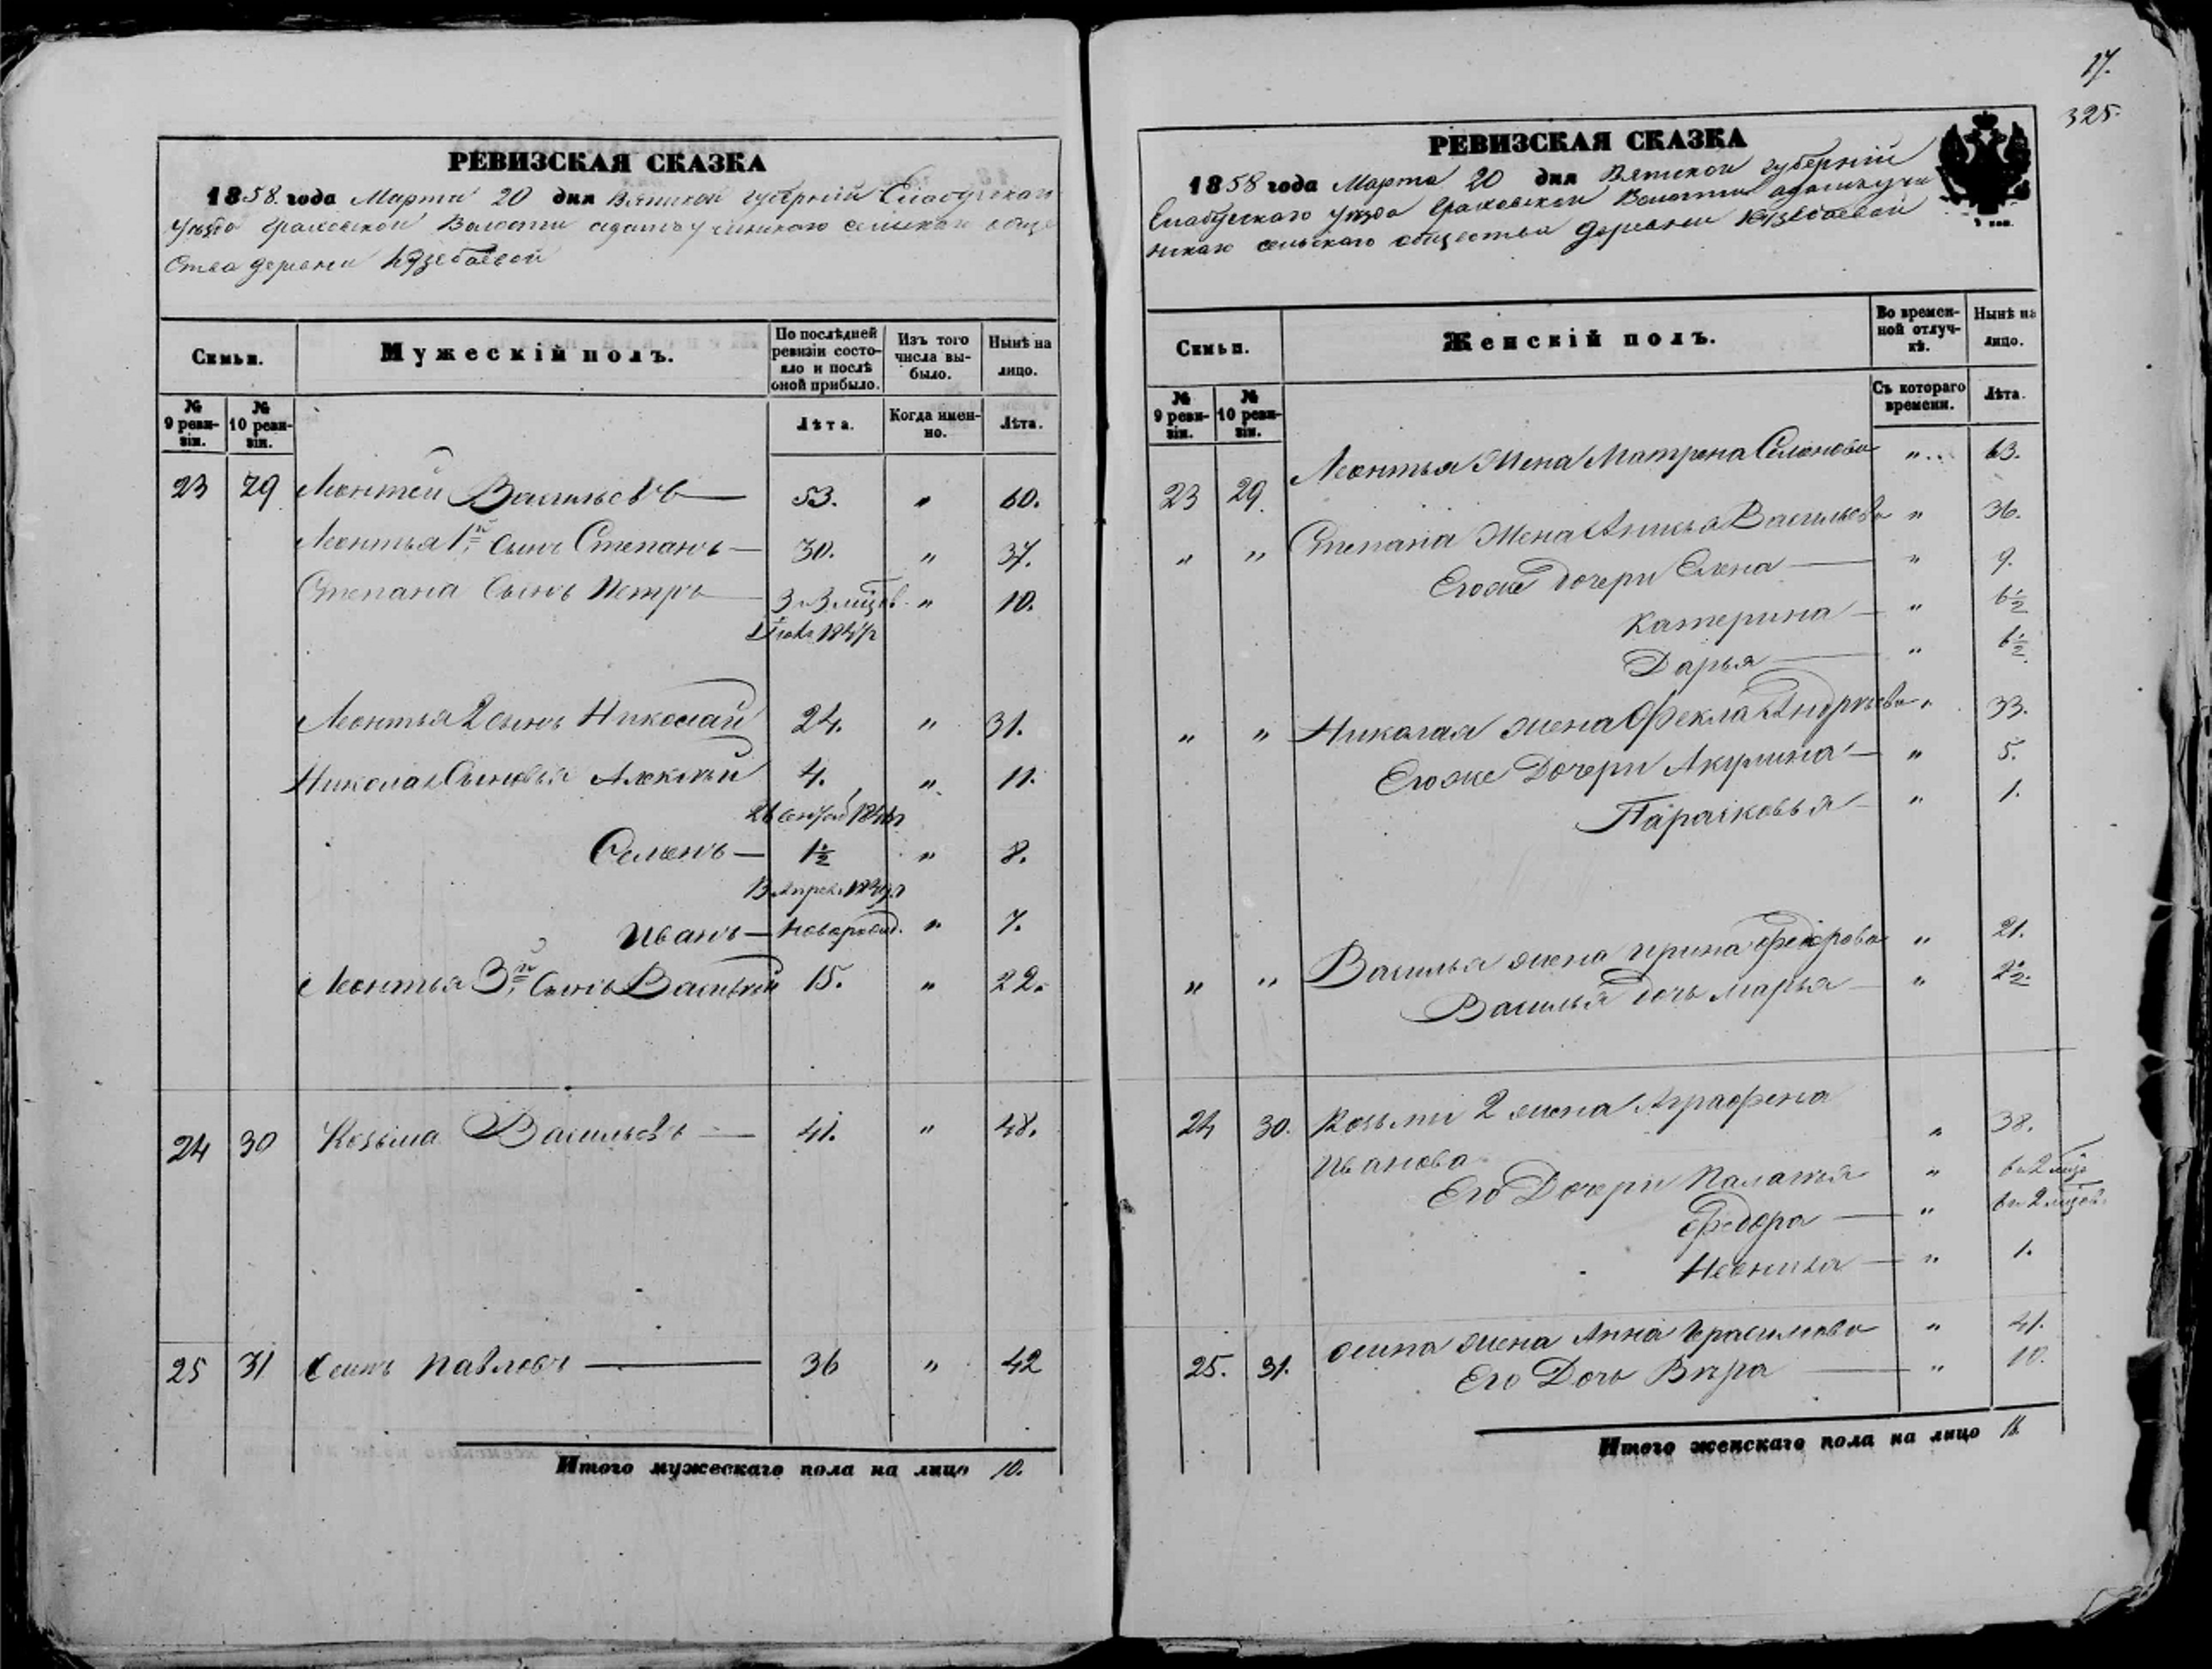 17.
325.
РЕВИЗСКАЯ СКАЗКА
1858 года Марта 20 дня Вятской губерніи Елабугскаго
Уезда Граховской Волости сельскаго обще
ства деревни Кузебаевой
Семьи.
Мужескій полъ.
По послѣдней ревизіи состояло и послѣ оной прибыло.
Изъ того числа выбыло.
Нынѣ на лицо.
№ 9 ревизіи.
№ 10 ревизіи.
Лѣта.
Когда именно.
Лѣта.
23 29 Леонтей Васильевъ — 53. " 60.
Леонтья 1й Сынъ Степанъ — 30. " 37.
Степана Сынъ Петръ 3 и 3 мѣсяц. " 10.
Леонтья 2 сынъ Николай 24. " 31.
Николая Сыновья Алексѣй 4. " 11.
Семенъ — 1½ " 8.
Иванъ — новорожд. " 7.
Леонтья 3й Сынъ Василей 15. " 22.
24 30 Козьма Васильевъ — 41. " 48.
25 31 Осипъ Павловъ — 36 " 42
Итого мужескаго пола на лицо 10.
РЕВИЗСКАЯ СКАЗКА
1858 года Марта 20 дня Вятской губерніи
Елабугскаго уезда Граховской Волости
скаго сельскаго общества деревни Кузебаевой
Семьи.
Женскій полъ.
Во временной отлучкѣ.
Нынѣ на лицо.
№ 9 ревизіи.
№ 10 ревизіи.
Съ котораго времени.
Лѣта.
23 29. Леонтья Жена Матрена Семенова " 63.
" " Степана Жена Анисья Васильева " 36.
Егоже дочери Елена — " 9.
Катерина — " 6½
Дарья — " 6½
" " Николая жена Фекла Андреева " 33.
Егоже Дочери Акулина — " 5.
Парасковья — " 1.
" " Василья жена Ирина Федорова " 21.
Василья дочь Марья — " 2½
24 30. Козьмы 2 жена Аграфена
Иванова " 38.
Его Дочери Палагья " 6 и 2 мѣс
Федора — " 6 и 2 мѣсяц.
" 1.
25. 31. Осипа жена Анна Герасимова " 41.
Его Дочь Вѣра — " 10.
Итого женскаго пола на лицо